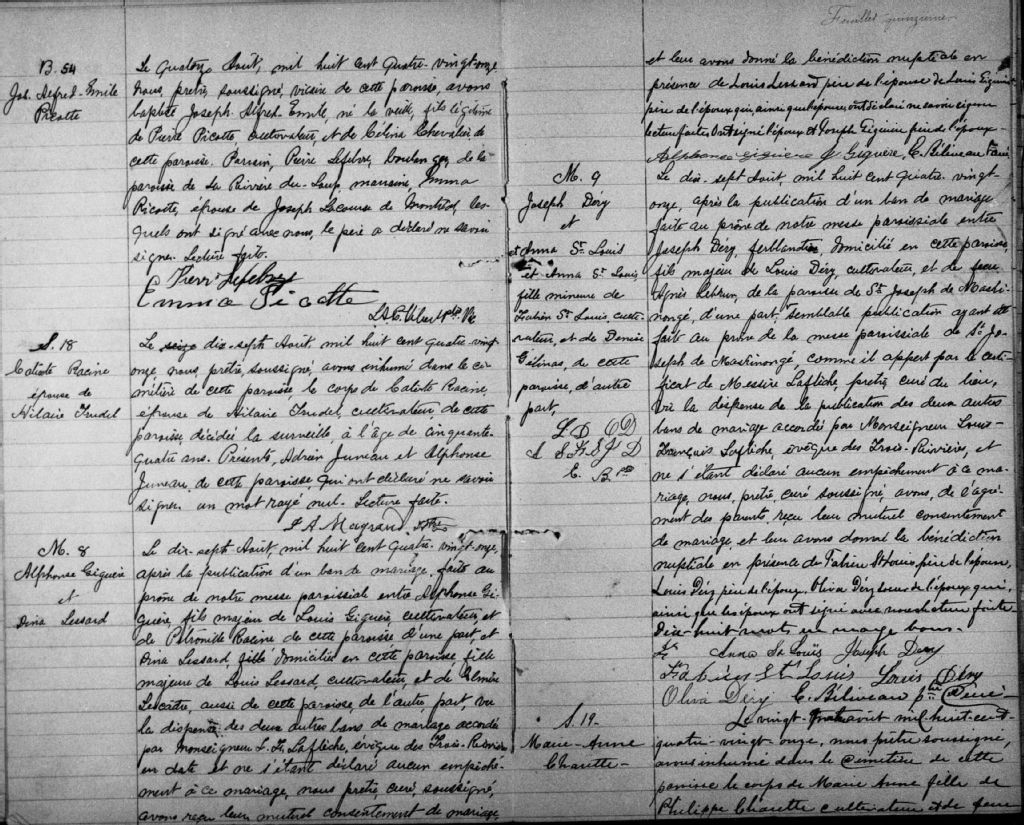 Feuillet quinzieme
B. 54
Jos. Alfred-Emile
Picotte
Le Quatorze Août, mil huit cent quatre-vingt-onze
Nous, prêtre, soussigné, vicaire de cette paroisse, avons
baptisé Joseph Alfred Emile, né la veille, fils légitime
de Pierre Picotte, cultivateur, et de Célina Chevalier de
cette paroisse. Parrain, Pierre Lefebvre, boulanger, de la
paroisse de la Rivière-du-Loup, marraine, Emma
Picotte, épouse de Joseph Lacourse de Montréal, les-
quels ont signé avec nous, le père a déclaré ne savoir
signer. Lecture faite.
Pierre Lefebvre
Emma Picotte
S. 18
Caliste Racine
épouse de
Hilaire Trudel
Le seize dix-sept Août, mil huit cent quatre-vingt-
onze, nous, prêtre, soussigné, avons inhumé dans le ci-
metière de cette paroisse le corps de Caliste Racine,
épouse de Hilaire Trudel, cultivateur, de cette
paroisse, décédée la surveille, à l'âge de cinquante-
quatre ans. Présents, Adrien Juneau et Alphonse
Juneau, de cette paroisse qui ont déclaré ne savoir
signer. un mot rayé nul. Lecture faite.
M. 8
Alphonse Giguère
et
Dina Lessard
Le dix-sept Août, mil huit cent quatre-vingt-onze,
après la publication d'un ban de mariage, faite au
prône de notre messe paroissiale entre Alphonse Gi-
guère, fils majeur de Louis Giguère, cultivateur, et
de Pétronille Racine de cette paroisse d'une part et
Dina Lessard, fille domiciliée en cette paroisse, fille
majeure de Louis Lessard, cultivateur, et de
aussi de cette paroisse, de l'autre part, vu
la dispense des deux autres bans de mariage accordée
par Monseigneur L. F. Laflèche, évêque des Trois-Rivières
en date et ne s'étant déclaré aucun empêche-
ment à ce mariage, nous prêtre curé, soussigné,
avons reçu leur mutuel consentement de mariage,
et leur avons donné la bénédiction nuptiale en
présence de Louis Lessard père de l'épouse, de Louis Giguère
père de l'époux qui, ainsi que l'épouse, ont déclaré ne savoir signer
lecture faite. Ont signé l'époux et Joseph Giguère frère de l'époux-
Alphonse Giguere J. Giguère, E. Béliveau Ptre Curé
M. 9
Joseph Déry
et
Anna St. Louis
et Anna St. Louis,
fille mineure de
Fabien St. Louis, culti-
vateur, et de
Gélinas, de cette
paroisse, d'autre
part,
L D O D
A S F S J D
E. B. Ptre
Le dix-sept Août, mil huit cent quatre-vingt-
onze, après la publication d'un ban de mariage
faite au prône de notre messe paroissiale entre
Joseph Déry, ferblantier, domicilié en cette paroisse,
fils majeur de Louis Déry, cultivateur, et de feue
Agnès Lebrun, de la paroisse de St. Joseph de Maski-
nongé, d'une part, semblable publication ayant été
faite au prône de la messe paroissiale de St. Jo-
seph de Maskinongé, comme il appert par le certi-
ficat de Messire Laflèche, prêtre, curé du lieu,
vu la dispense de la publication des deux autres
bans de mariage accordée par Monseigneur Louis-
François Laflèche, évêque des Trois-Rivières, et
ne s'étant déclaré aucun empêchement à ce ma-
riage, nous, prêtre, curé soussigné, avons, de l'agré-
ment des parents, reçu leur mutuel consentement
de mariage, et leur avons donné la bénédiction
nuptiale en présence de Fabien St Louis père de l'épouse,
Louis Déry père de l'époux, Oliva Déry soeur de l'époux qui,
ainsi que les époux ont signé avec nous. Lecture faite
Dix-huit mots en marge bons.
Anna St Louis Joseph Dery
Fabien St Louis Louis Déry
Oliva Déry E. Béliveau Ptre Curé
S. 19-
Marie-Anne
Charette-
Le vingt-quatre août mil-huit-cent-
quatre-vingt-onze, nous prêtre soussigné,
avons inhumé dans le cimetière de cette
paroisse le corps de Marie Anne fille de
Philippe Charette cultivateur et de feue